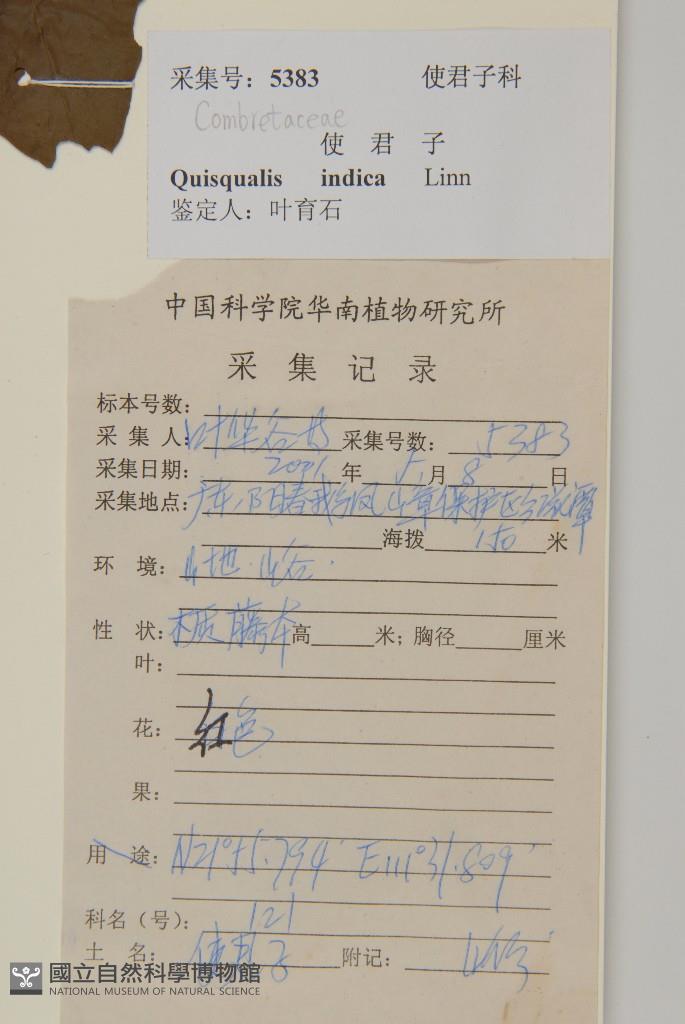 采集号：5383 使君子科
Combretaceae
使 君 子
Quisqualis indica Linn
鉴定人：叶育石
中国科学院华南植物研究所
采 集 记 录
标本号数：
采 集 人：叶华谷 采集号数：5383
采集日期：2001年5月8日
采集地点：广东阳春鹅凰嶂保护区
海拔 150 米
环 境：山地.山谷.
性 状：木质藤本 高 米；胸径 厘米
叶：
花：红色
果：
用 途：N21°55.794′ E111°31.809′
科名（号）：121
土 名：使君子 附记：
國立自然科學博物館
NATIONAL MUSEUM OF NATURAL SCIENCE